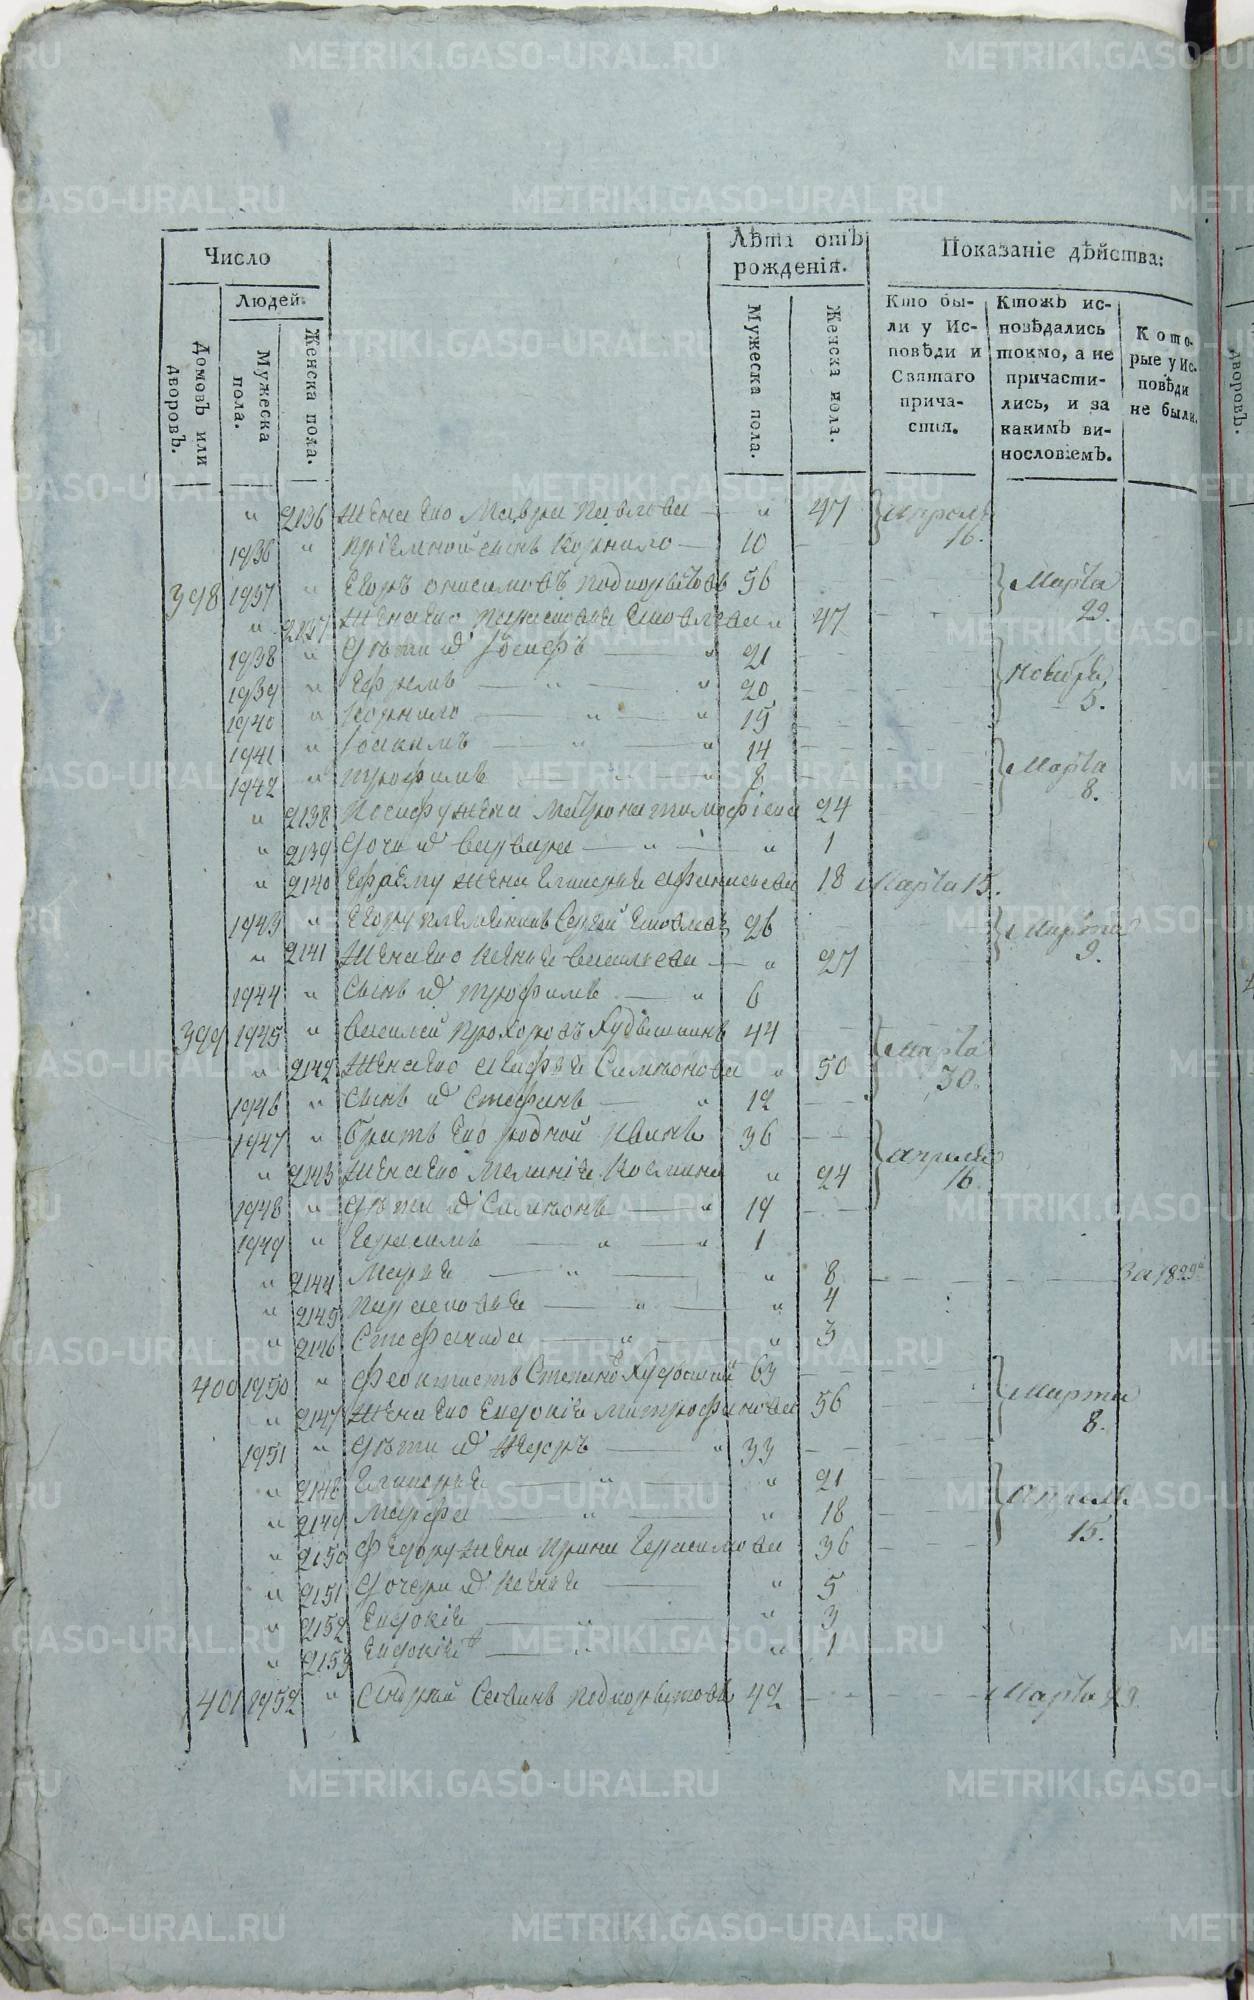 Число
Лѣта отъ рожденія.
Показаніе дѣйства:
Людей.
Домовъ или дворовъ.
Мужеска пола.
Женска пола.
Мужеска пола.
Женска пола.
Кто были у Исповѣди и Святаго причастія.
Ктожъ исповѣдались токмо, а не причастились, и за какимъ винословіемъ.
Которые у Исповѣди не были.
" 2136 Жена его Мавра Павлова — " 47 Апреля 16.
1936 " приемной сынъ Корнило — 10
398 1937 " Егоръ Онисимовъ Подкорытовъ 56 Марта 29.
" 2137 Жена его Парасковія Яковлева " 47
1938 " Дѣти и҃ Іосифъ — " 21
1939 " Ефремъ — " — " 20 Ноября 5.
1940 " Корнило — " — " 15
1941 " Іоакимъ — " — " 14
1942 " Трофимъ — " — " 8 Марта 8.
" 2138 Иосифу жена Матрона Тимофіева 24
" 2139 Дочь и҃ Варвара — " — " 1
" 2140 Ефрему жена Афанасьева 18 Марта 15.
1943 " Егору племянникъ Сергей Яковлевъ 26 Марта 9.
" 2141 Жена его Ксенія Васильева — " 27
1944 " Сынъ и҃ Трофимъ — " 6
399 1945 " Василей Прохоровъ 44 Марта 30.
" 2142 Жена его Марфа Симионова " 50
1946 " Сынъ и҃ Стефанъ — " 12
1947 " Братъ его родной Иванъ 36 Апреля 16.
" 2143 Жена его Меланія Козмина " 24
1948 " Дѣти и҃ Симионъ — " 14
1949 " Герасимъ — " — " 1
" 2144 Марія — " — " 8 За 1829й
" 2145 Парасковія — " — " 4
" 2146 Стефанида — " — " 3
400 1950 " Феоктистъ Степановъ 63 Марта 8.
" 2147 Жена его Евдокія Митрофанова 56
1951 " Дѣти и҃ — " 33
" 2148 — " — " 21 Апреля 15.
" 2149 Марфа — " — " 18
" 2150 Федору жена Ирина Герасимова 36
" 2151 Дочери и҃ Ксенія — " 5
" 2152 Евдокія — " — " 3
" 2153 Евдокія — " — " 1
401 1952 " Андрей Савинъ Подкорытовъ 42 Марта 29.
METRIKI.GASO-URAL.RU